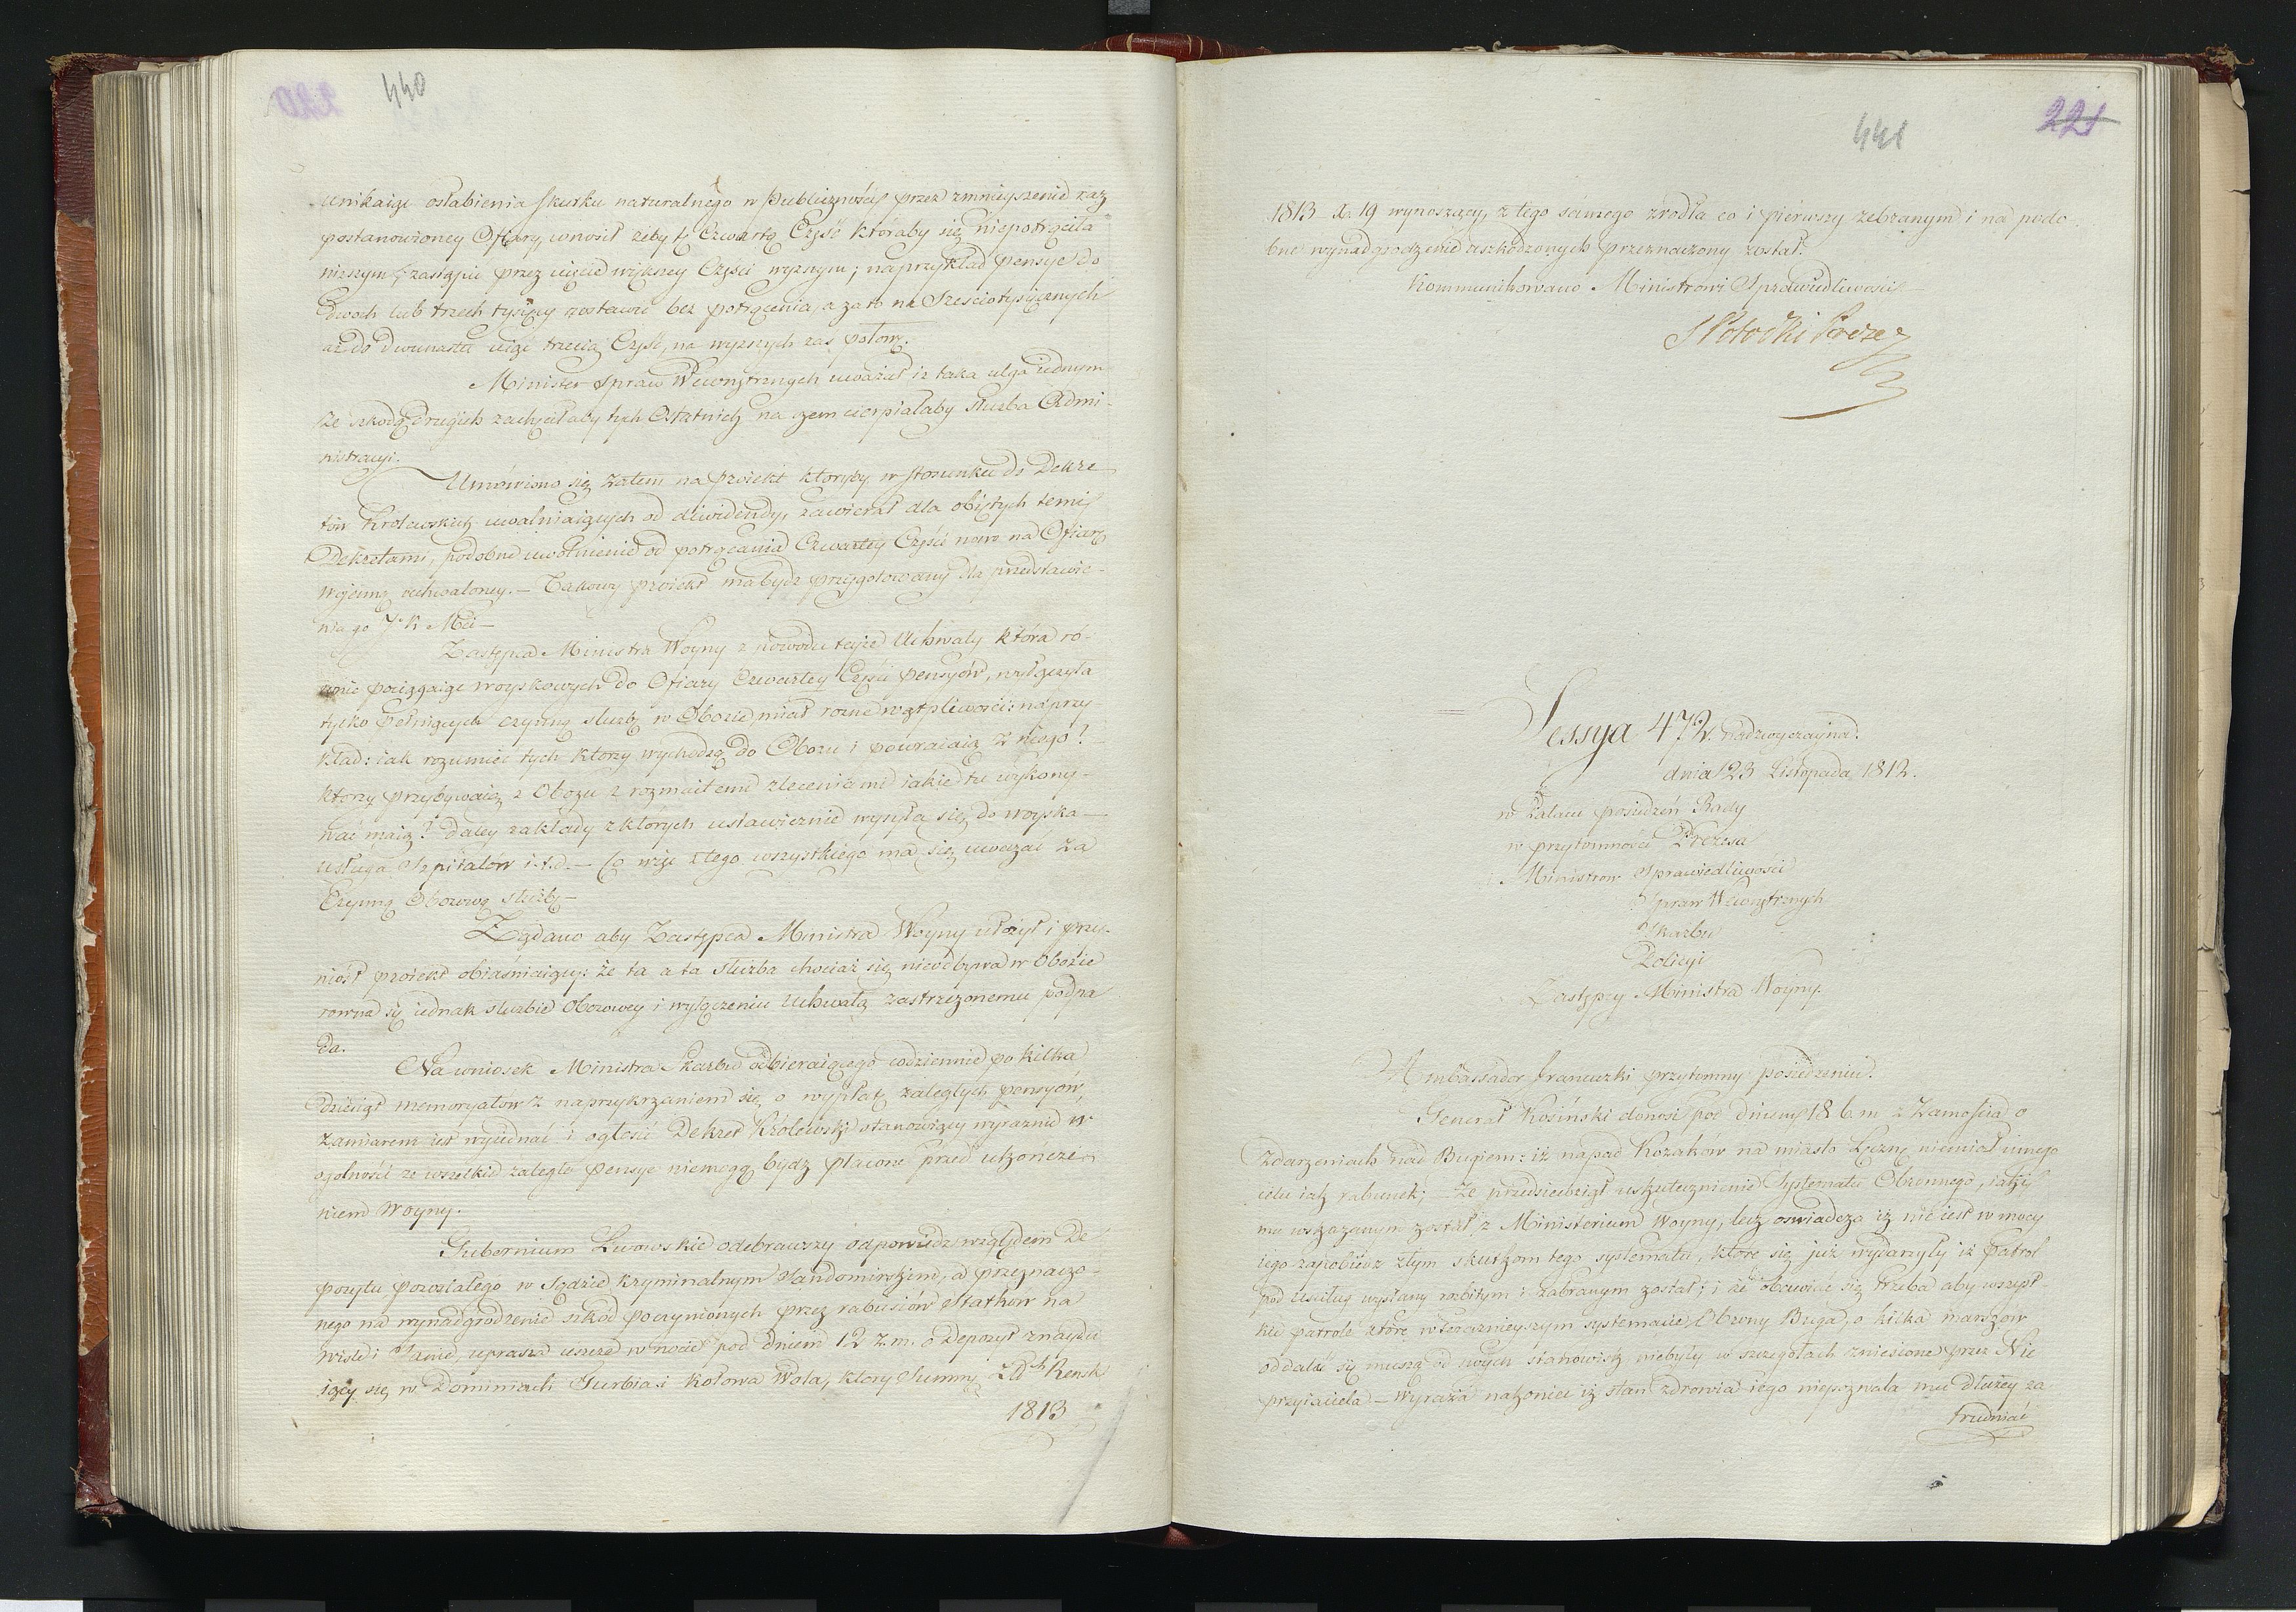 440
unikaiąc osłabienia skutku naturalnego w Publicznośći przez zmnieyszenie raz
postanowioney Ofiary, wnosił żeby tę Czwartą Część któraby się niepotrąciła
niższym, zastąpić przez ujęcie większey Części wyższym; naprzykład pensye do
dwoch lub trzech tysięcy zostawić bez potrącenia, a za to na Sześciotysięcznych
aż do dwunastu ująć trzecią Część, na wyższych zaś połowę.
Minister Spraw Wewnętrznych uważał iż taka ulga iednym
ze szkodą drugich zachęciłaby tych Ostatnich na czem cierpiałaby służba Admi-
nistracyi.
Umówiono się zatem na proiekt któryby w stosunku do Dekre
tów Królewskich uwalniaiących od diwidendy, zawierał dla obiętych temi
Dekretami, podobne uwolnienie od potrącania Czwartey Części now na Ofiarę
Woienną uchwaloney. — Takowy proiekt ma bydź przygotowany dla przedstawie-
nia go J. K. Mci —
Zastępca Ministra Woyny z powodu teyże Uchwały która ró-
wnie pociągaiąc woyskowych do Ofiary Czwartey Części pensyów, wyłączyła
tylko Pełniących czynną służbę w Obozie, miał rożne wątpliwości: naprzy-
kład: iak rozumieć tych którzy wychodzą do Obozu i powracaią z niego? —
którzy przybywaią z Obozu z rozmaitemi zleceniami iakie tu wykony-
wać maią? Daley zakłady z których ustawicznie wysyła się do woyska —
usługa Szpitalów i.t.d. — Co więc z tego wszystkiego ma się uważać za
Czynną Obozową służbę —
Żądano aby Zastępca Ministra Woyny ułożył i przy-
niosł proiekt obiaśniaiący: że ta a ta służba chociaż się nieodbywa w Obozie
rowna się iednak służbie Obozowey i wyłączeniu Uchwałą zastrzeżonemu podpa
da.
Na wniosek Ministra Skarbu odbieraiącego codziennie po kilka
dziesiąt memoryałow z naprzykrzaniem się o wypłatę zaległych pensyów,
zamiarem iest wyiednać i ogłosić Dekret Królewski stanowiący wyraznie w
ogolności że wszelkie zaległe pensye niemogą bydź płacone przed ukończe-
niem Woyny.
Gubernium Lwowskie odebrawszy odpowiedź względem De
pozytu pozostałego w Sądzie kryminalnym Sandomirskim, a przeznaczo-
nego na wynadgrodzenie szkód poczynionych przez rabusiów Statków na
Wiśle i Sanie, uprasza ieszcze w nocie pod dniem 12 z. m. o Depozyt znaydu
iący się w Dominiach Turbia i Kotowa Wola, który Summę Złt Reńsk
1813
441
221
1813 Xr 19 wynoszący, z tego samego źródła co i pierwszy zebranym i na podo
bne wynadgrodzenie uszkodzonych przeznaczony został.
Kommunikowano Ministrowi Sprawiedliwości —
S Potocki Prezez
Sessya 472. Nadzwyczayna.
dnia 23 Listopada 1812.
w Pałacu posiedzeń Rady
w przytomności Prezesa
Ministrow Sprawiedliwości
Spraw Wewnętrznych
Skarbu
Policyi
Zastępcy Ministra Woyny.
Ambassador francuzki przytomny posiedzeniu.
Generał Kosiński donosi pod dniem 18 b. m. z Zamościa o
zdarzeniach nad Bugiem: iż napad Kozaków na miasto Łęcznę niemiał innego
celu iak rabunek; — że przedsiewziął uskutecznienie Systematu Obronnego, iaki
mu wskazanym został z Ministerium Woyny, lecz oświadcza iż nie iest w mocy
iego zapobiedz złym skutkom tego systematu, które się już wydarzyły iż patrol
pod Uściług wysłany rozbitym i zabranym został; i że obawiać się trzeba aby wszyst-
kie patrole które w teraznieyszym systemacie Obrony Buga, o kilka marszów
oddalać się muszą od swych stanowisk niebyły w szczegołach zniesione przez Nie
przyiaciela — Wyraża nakoniec iż stan zdrowia iego niepozwala mu dłużey za
trudniać